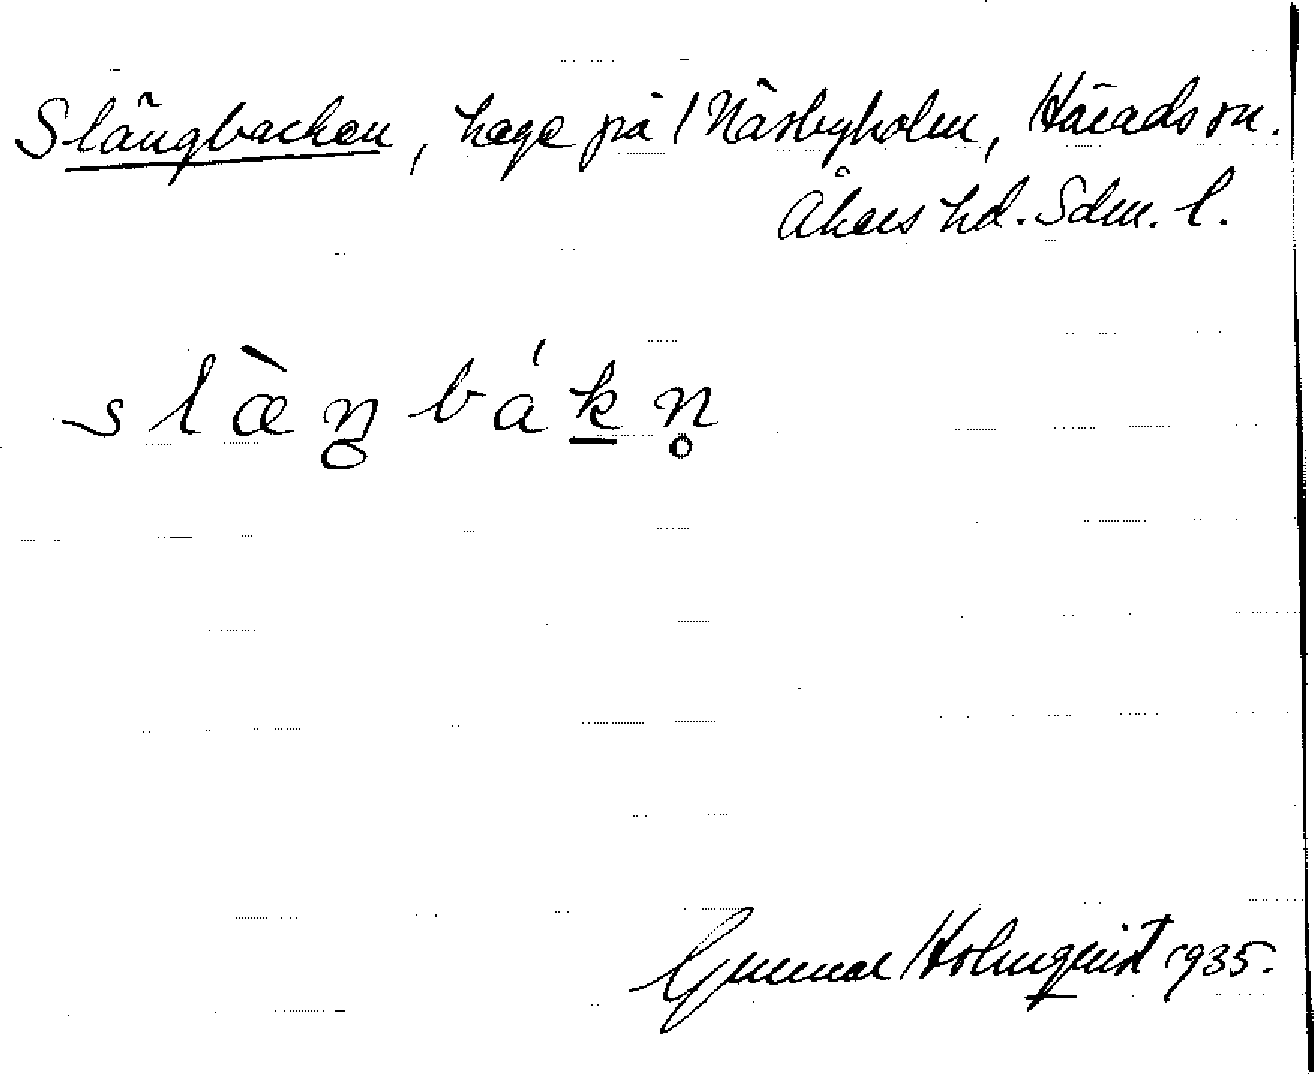 Slängbacken, hage på Näsbyholm, Härads sn.
Åkers hd. Sdm. l.
slæ̀ŋbák̲n̥
Gunnar Holmquist 1935.